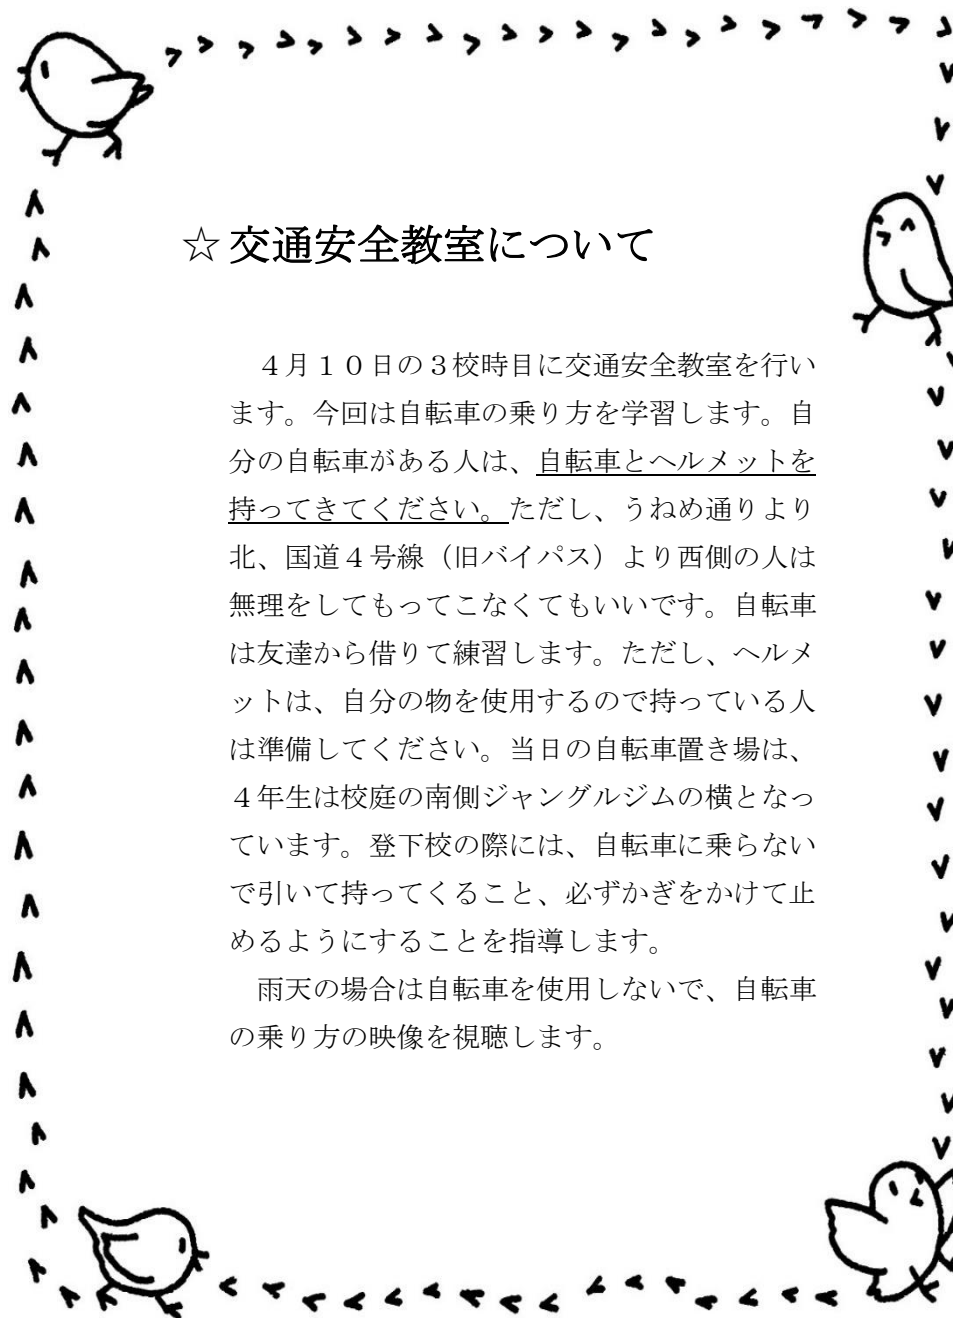 ☆交通安全教室について
　４月１０日の３校時目に交通安全教室を行い
ます。今回は自転車の乗り方を学習します。自
分の自転車がある人は、自転車とヘルメットを
持ってきてください。ただし、うねめ通りより
北、国道４号線（旧バイパス）より西側の人は
無理をしてもってこなくてもいいです。自転車
は友達から借りて練習します。ただし、ヘルメ
ットは、自分の物を使用するので持っている人
は準備してください。当日の自転車置き場は、
４年生は校庭の南側ジャングルジムの横となっ
ています。登下校の際には、自転車に乗らない
で引いて持ってくること、必ずかぎをかけて止
めるようにすることを指導します。
　雨天の場合は自転車を使用しないで、自転車
の乗り方の映像を視聴します。